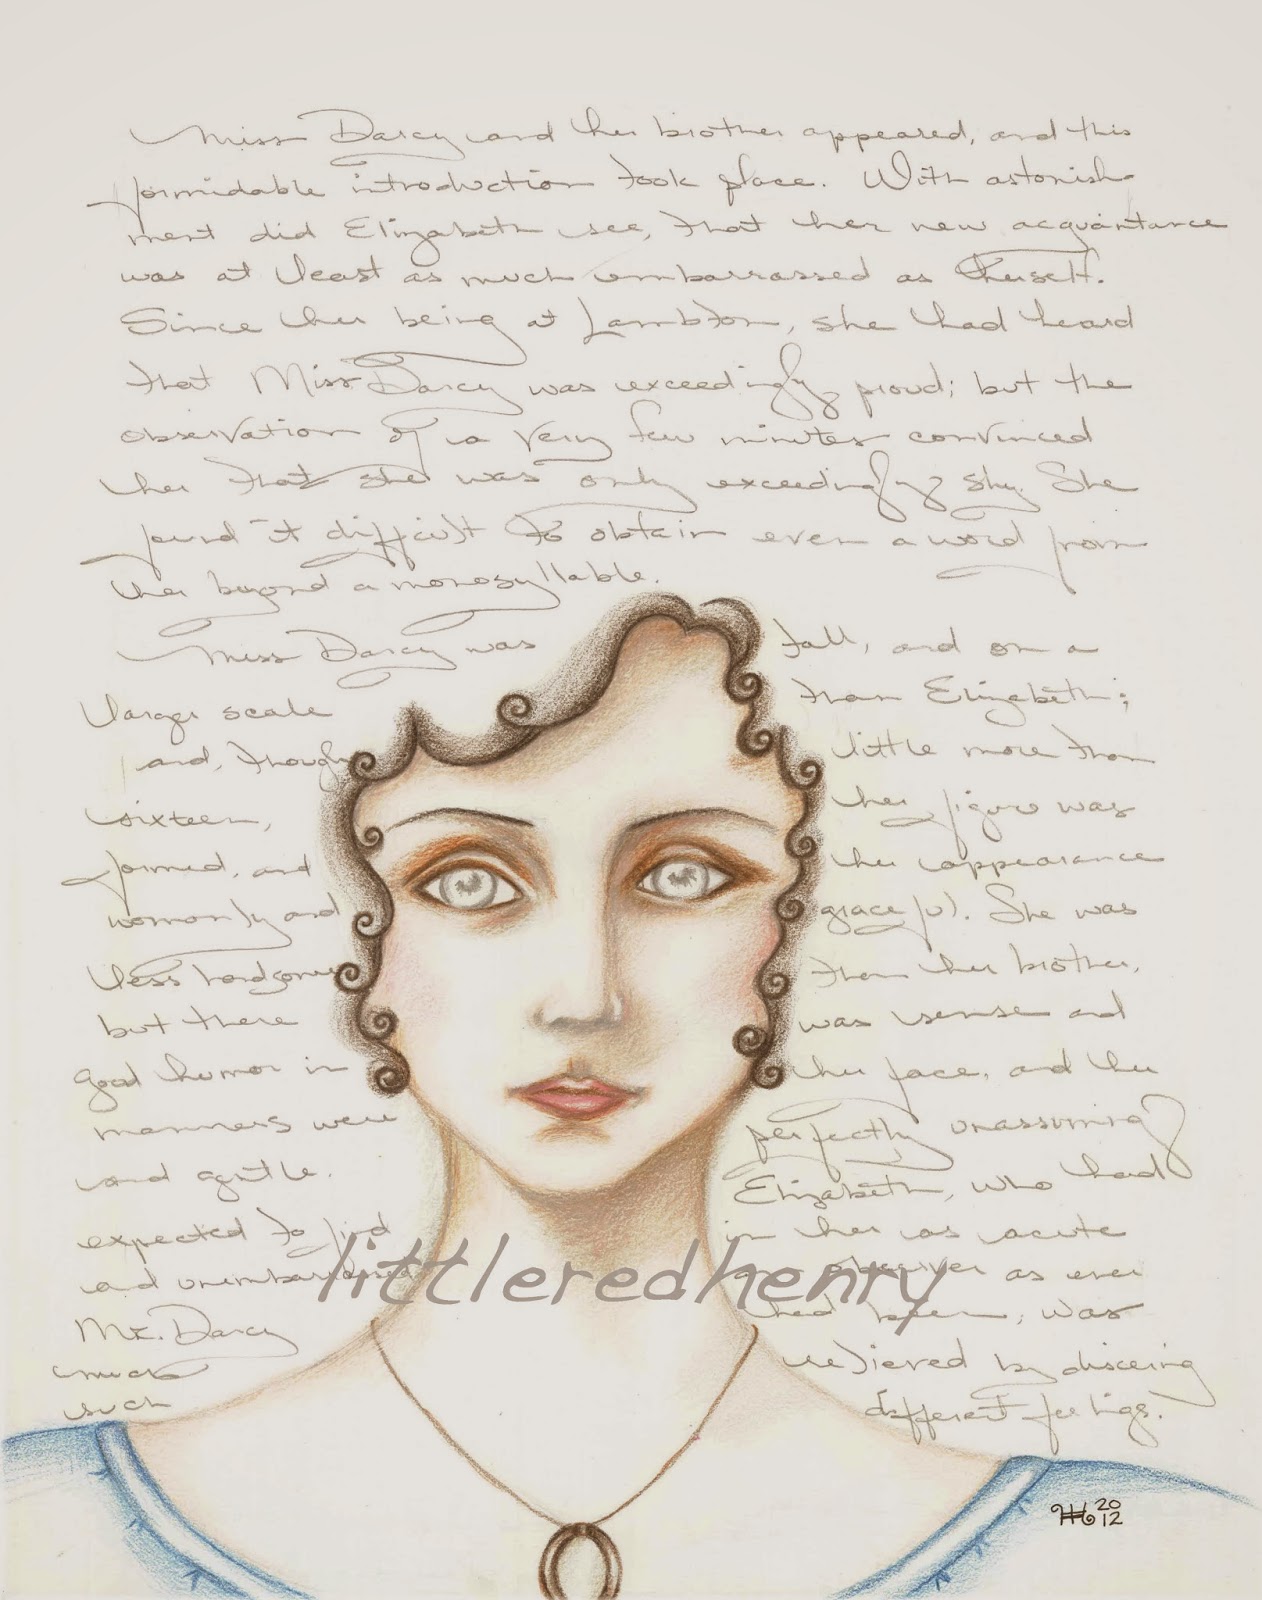 Miss Darcy and her brother appeared, and this
formidable introduction took place. With astonish
ment did Elizabeth see, that her new acquaintance
was at least as much embarrassed as herself.
Since her being at Lambton, she had heard
that Miss Darcy was exceedingly proud; but the
observation of a very few minutes convinced
her that she was only exceedingly shy. She
found it difficult to obtain even a word from
her beyond a monosyllable.
Miss Darcy was tall, and on a
larger scale than Elizabeth;
and, though little more than
sixteen, her figure was
formed, and her appearance
womanly and graceful. She was
less handsome than her brother,
but there was sense and
good humor in her face, and her
manners were perfectly unassuming
and gentle. Elizabeth, who had
expected to find in her as acute
and unembarrassed an observer as ever
Mr. Darcy had been, was
much relieved by discerning
such different feelings.
littleredhenry
20
12